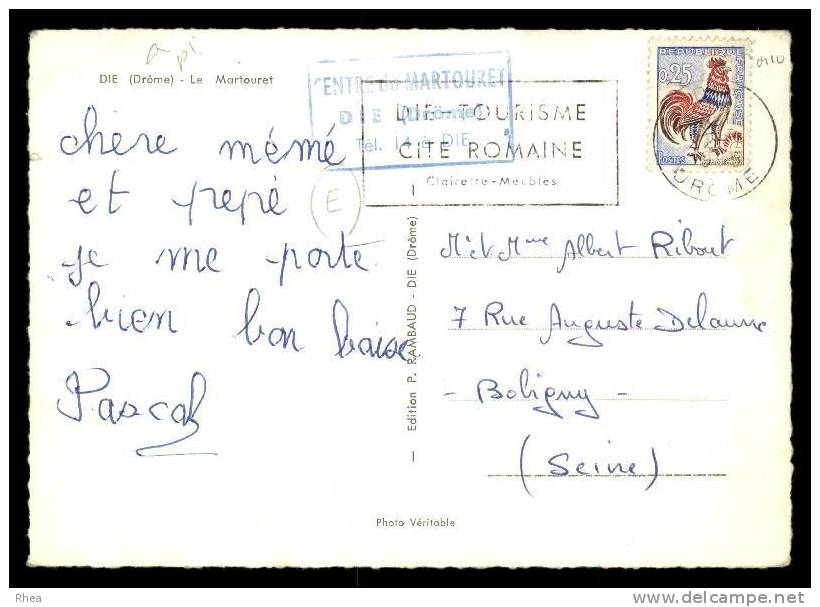 a pi
DIE (Drôme) - Le Martouret
CENTRE du MARTOURET
DIE (Drôme)
Tél. 14 à DIE
DIE-TOURISME
CITE ROMAINE
Clairette-Meubles
REPUBLIQUE FRANCAISE
0,25
POSTES
DROME
chère mémé
et pepé
je me porte
bien bon baise
Pascal
E
M. et Mme Albert Ribout
7 Rue Auguste Delaune
- Bobigny -
(Seine)
Edition P. RAMBAUD - DIE (Drôme)
Photo Véritable
Rhea
www.delcampe.net